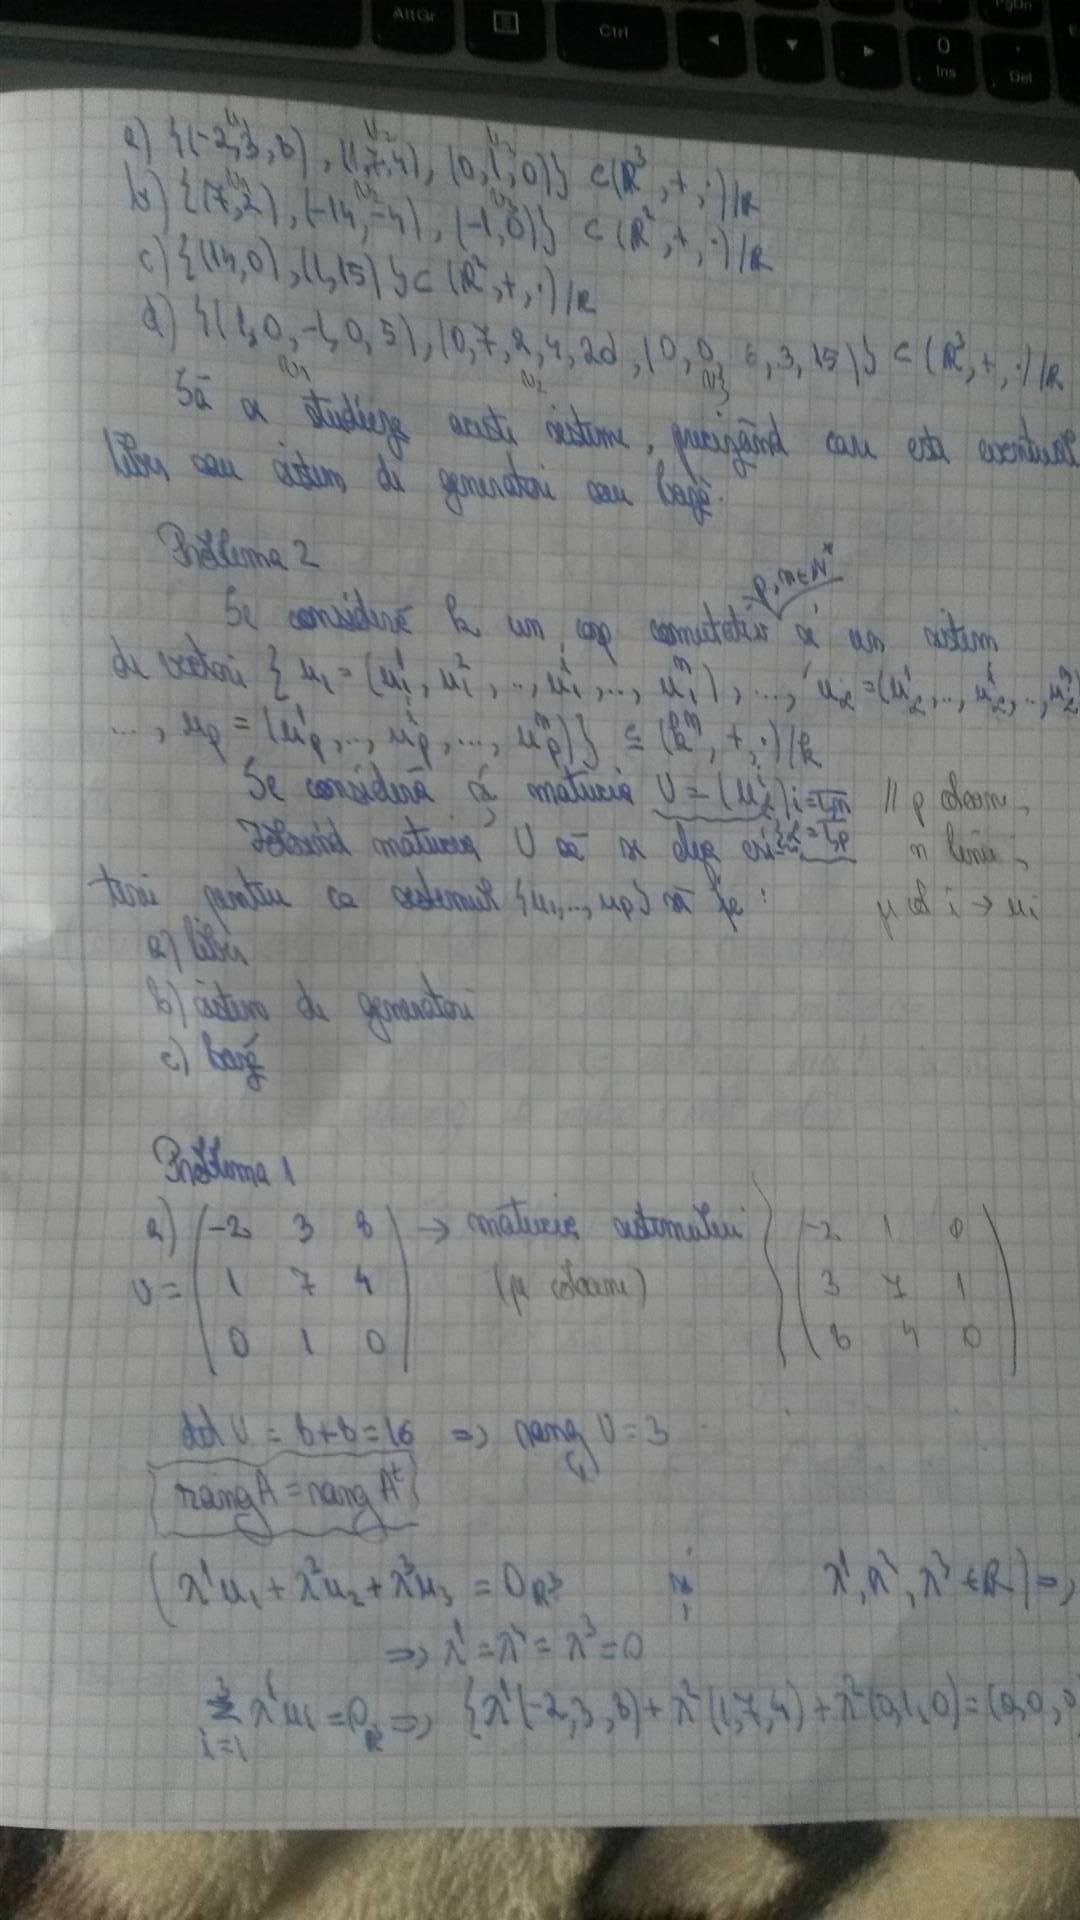 AltGr Ctrl ◄ ▼ ► 0 Ins . Del PgDn
a) {(-2,3,8), (1,7,4), (0,1,0)} ⊂ (R³,+,·)/R
b) {(7,2), (-14,-4), (-1,0)} ⊂ (R²,+,·)/R
c) {(14,0), (1,15)} ⊂ (R²,+,·)/R
d) {(1,0,-1,0,5), (0,7,2,4,20), (0,0,6,3,15)} ⊂ (R³,+,·)/R
Să se studieze aceste sisteme, precizând care este eventual
liber sau sistem de generatori sau bază.
Problema 2
p,n∈N*
Se consideră k un corp comutativ și un sistem
de vectori {u₁=(u₁¹,u₁²,..,u₁ⁱ,...,u₁ⁿ),...,u_α=(u_α¹,..,u_α^i,..,u_αⁿ)
...,u_p=(u_p¹,..,u_p^i,...,u_pⁿ)} ⊆ (kⁿ,+,·)/k
Se consideră și matricea U=(u_α^i) i=1,n // p coloane,
Folosind matricea U să se dea cri- α=1,p n linii,
terii pentru ca sistemul {u₁,...,u_p} să fie: pe col i → u_i
a) liber
b) sistem de generatori
c) bază
Problema 1
a) (-2 3 8) → matricea sistemului (-2 1 0)
U= (1 7 4) (pe coloane) (3 7 1)
(0 1 0) (8 4 0)
det U = 8+8=16 => rang U=3
rang A = rang Aᵗ
(λ¹u₁+λ²u₂+λ³u₃ = 0_R³ și λ¹,λ²,λ³∈R) =>
=> λ¹=λ²=λ³=0
3 Σ i=1 λⁱu_i=0_R => {λ¹(-2,3,8)+λ²(1,7,4)+λ²(0,1,0)=(0,0,0